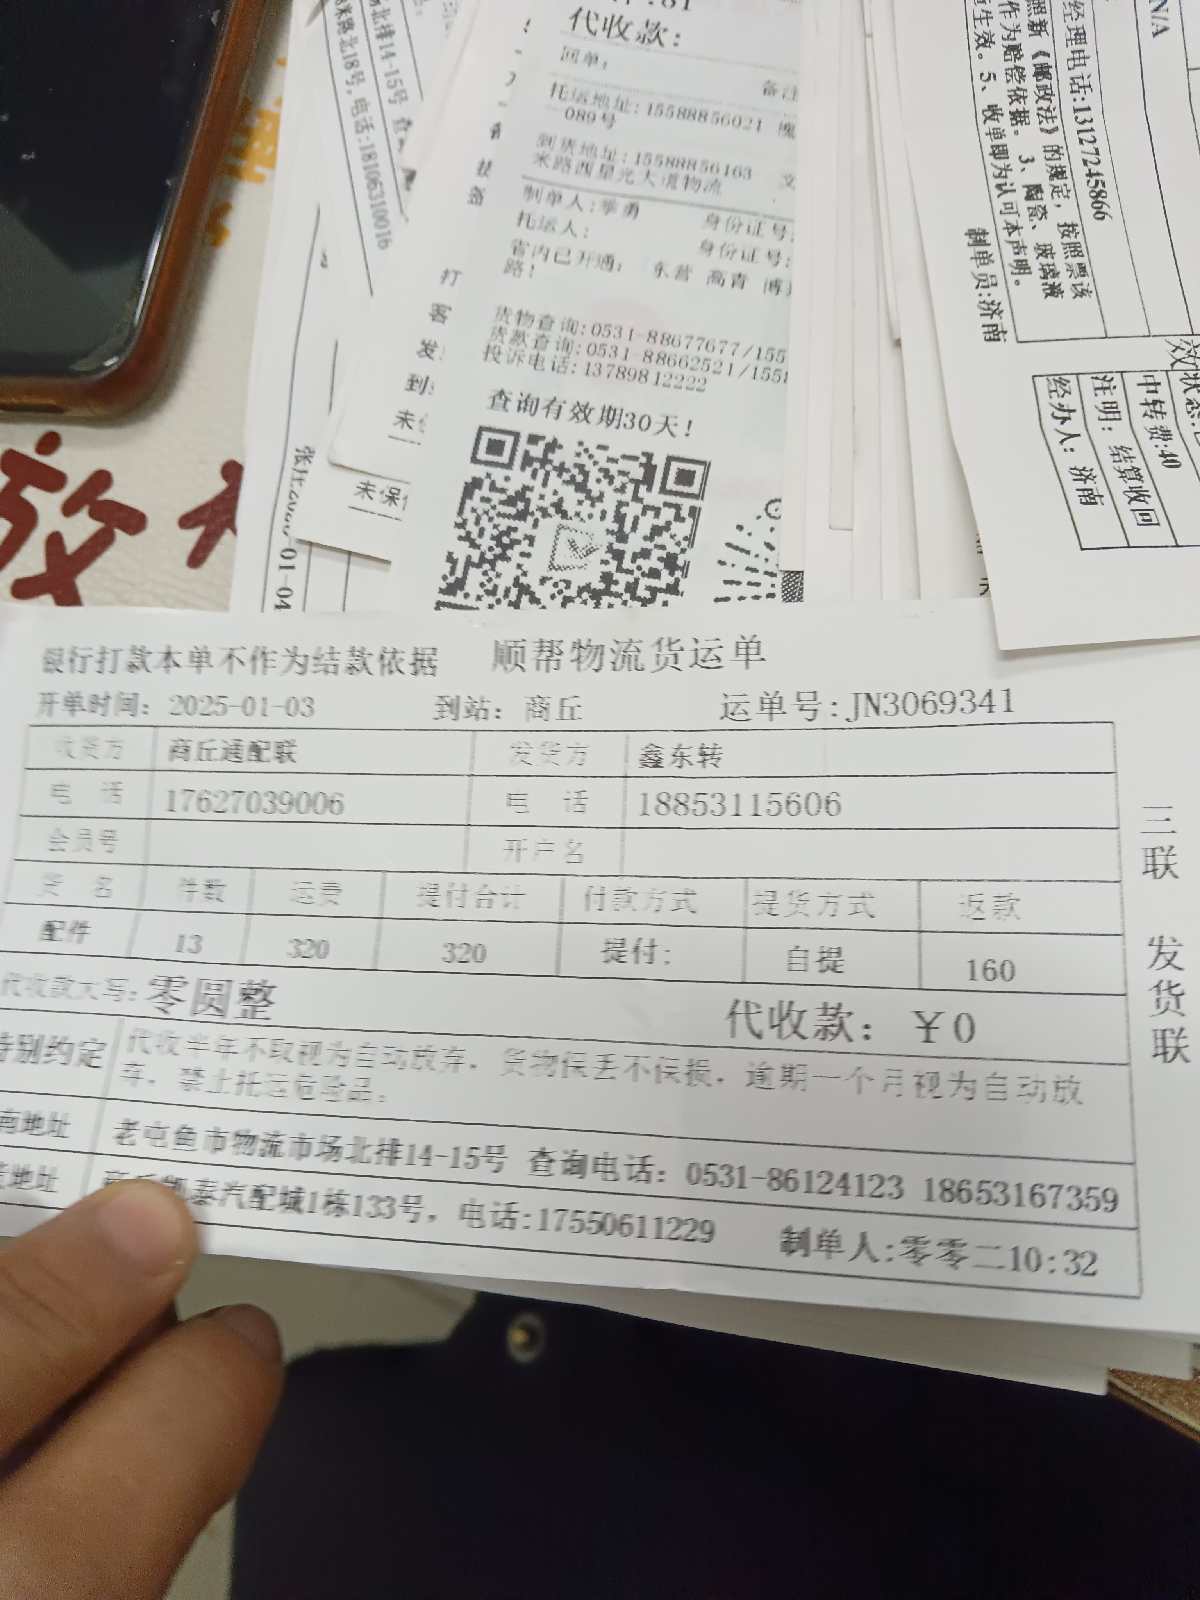 代收款:
回单:
备注
托运地址:15588856021
089号
到货地址:15588856463
米路西星光大道物流
制单人:季勇 身份证号:
托运人: 身份证号:
省内已开通: 东营 高青 博
路!
货物查询:0531-88677677/155
货款查询:0531-88662521/155
投诉电话:13789812222
查询有效期30天!
场北排14-15号
米路北18号,电话:18106310016
打
客
发
到
未
未保
01-04
N/A
经理电话:13127245866
照新《邮政法》的规定,按照票该
作为赔偿依据。 3、陶瓷、玻璃液
生效。5、收单即为认可本声明。
制单员:济南
中转费:40
注明: 结算收回
经办人: 济南
银行打款本单不作为结款依据 顺帮物流货运单
开单时间: 2025-01-03 到站: 商丘 运单号:JN3069341
收货方 商丘通配联 发货方 鑫东转
电 话 17627039006 电 话 18853115606
会员号 开户名
货 名 件数 运费 提付合计 付款方式 提货方式 返款
配件 13 320 320 提付: 自提 160
代收款大写: 零圆整 代收款: ¥0
特别约定 代收半年不取视为自动放弃, 货物保丢不保损, 逾期一个月视为自动放
弃, 禁止托运危险品。
南地址 老屯鱼市物流市场北排14-15号 查询电话: 0531-86124123 18653167359
地址 凯泰汽配城1栋133号, 电话:17550611229 制单人:零零二10:32
三联 发货联